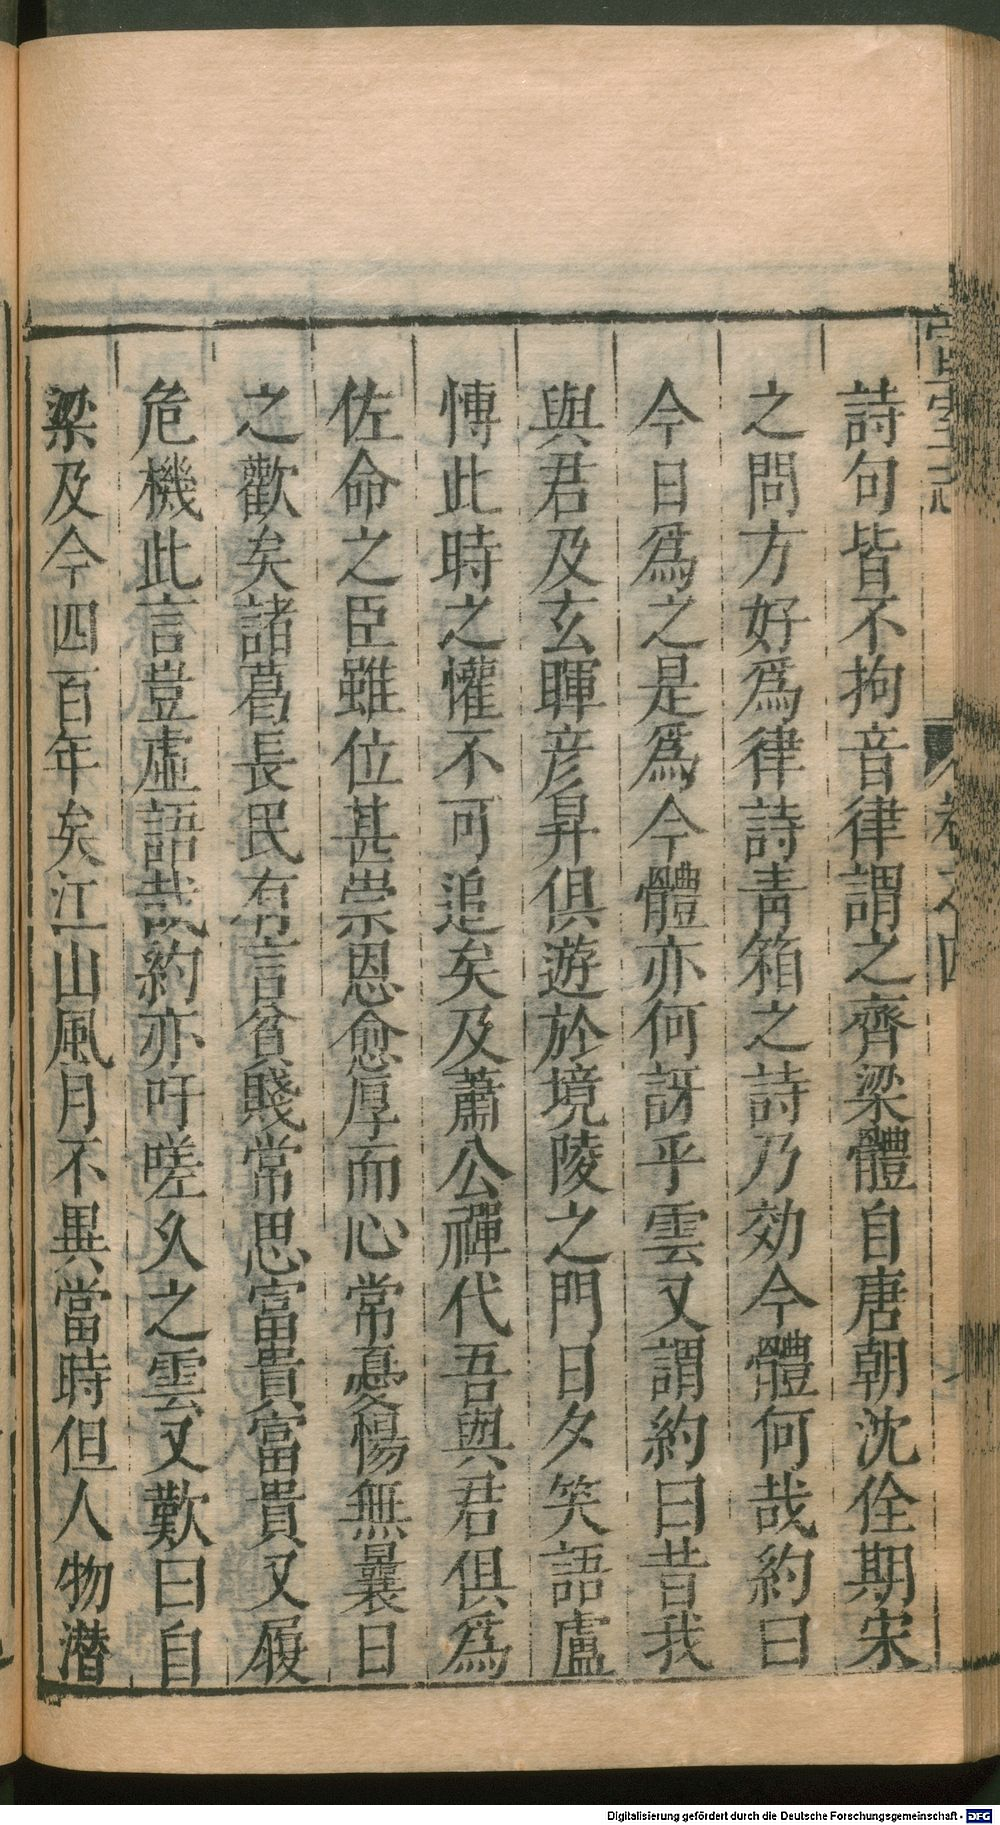 詩句皆不拘音律謂之齊梁體自唐朝沈佺期宋
之問方好爲律詩靑箱之詩乃效今體何哉約曰
今日爲之是爲今體亦何訝乎雲又謂約曰昔我
與君及玄暉彥昇俱遊於境陵之門日夕笑語盧
慱此時之懽不可追矣及蕭公禪代吾與君俱爲
佐命之臣雖位甚崇恩愈厚而心常憂惕無曩日
之歡矣諸葛長民有言貧賤常思富貴富貴又履
危機此言豈虛語哉約亦吁嗟久之雲又歎曰自
梁及今四百年矣江山風月不異當時但人物潛
宣室志
卷之四
Digitalisierung gefördert durch die Deutsche Forschungsgemeinschaft - DFG